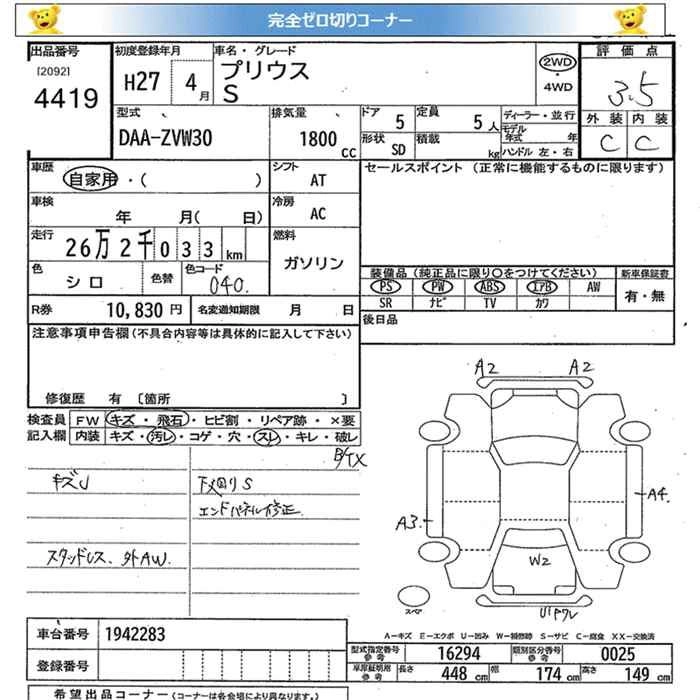 完全ゼロ切りコーナー
出品番号 初度登録年月 車名・グレード 評価点
[2092] 4419
H27 4月 プリウス S
2WD・4WD
3.5
外装 内装
C C
型式 排気量 ドア 定員 ディーラー・並行
DAA-ZVW30 1800CC 5 5人
モデル年式 年
形状 SD 積載 kg ハンドル 左・右
車歴 自家用・( ) シフト AT
セールスポイント(正常に機能するものに限ります)
車検 年 月( 日) 冷房 AC
走行 26万2千033km 燃料 ガソリン
色 シロ 色替 色コード 040.
装備品(純正品に限り○をつけてください) 新車保証書
PS PW ABS エアB AW 有・無
SR ナビ TV カワ
R券 10,830円 名変通知期限 月 日
後日品
注意事項申告欄(不具合内容等は具体的に記入して下さい)
修復歴 有 [箇所 ]
検査員記入欄 FW キズ・飛石・ヒビ割・リペア跡・×要
内装 キズ・汚レ・コゲ・穴・スレ・キレ・破レ
キズJ 下廻りS
エンドパネル修正
スタッドレス、外AW.
A2 A2
A3. A4.
W2
スペア
車台番号 1942283
A-キズ E-エクボ U-凹み W-補修跡 S-サビ C-腐食 XX-交換済
登録番号
型式指定番号 参考 16294 類別区分番号 参考 0025
長さ 448 cm 幅 174 cm 高さ 149 cm
希望出品コーナー(コーナーは各会場により異なります。)